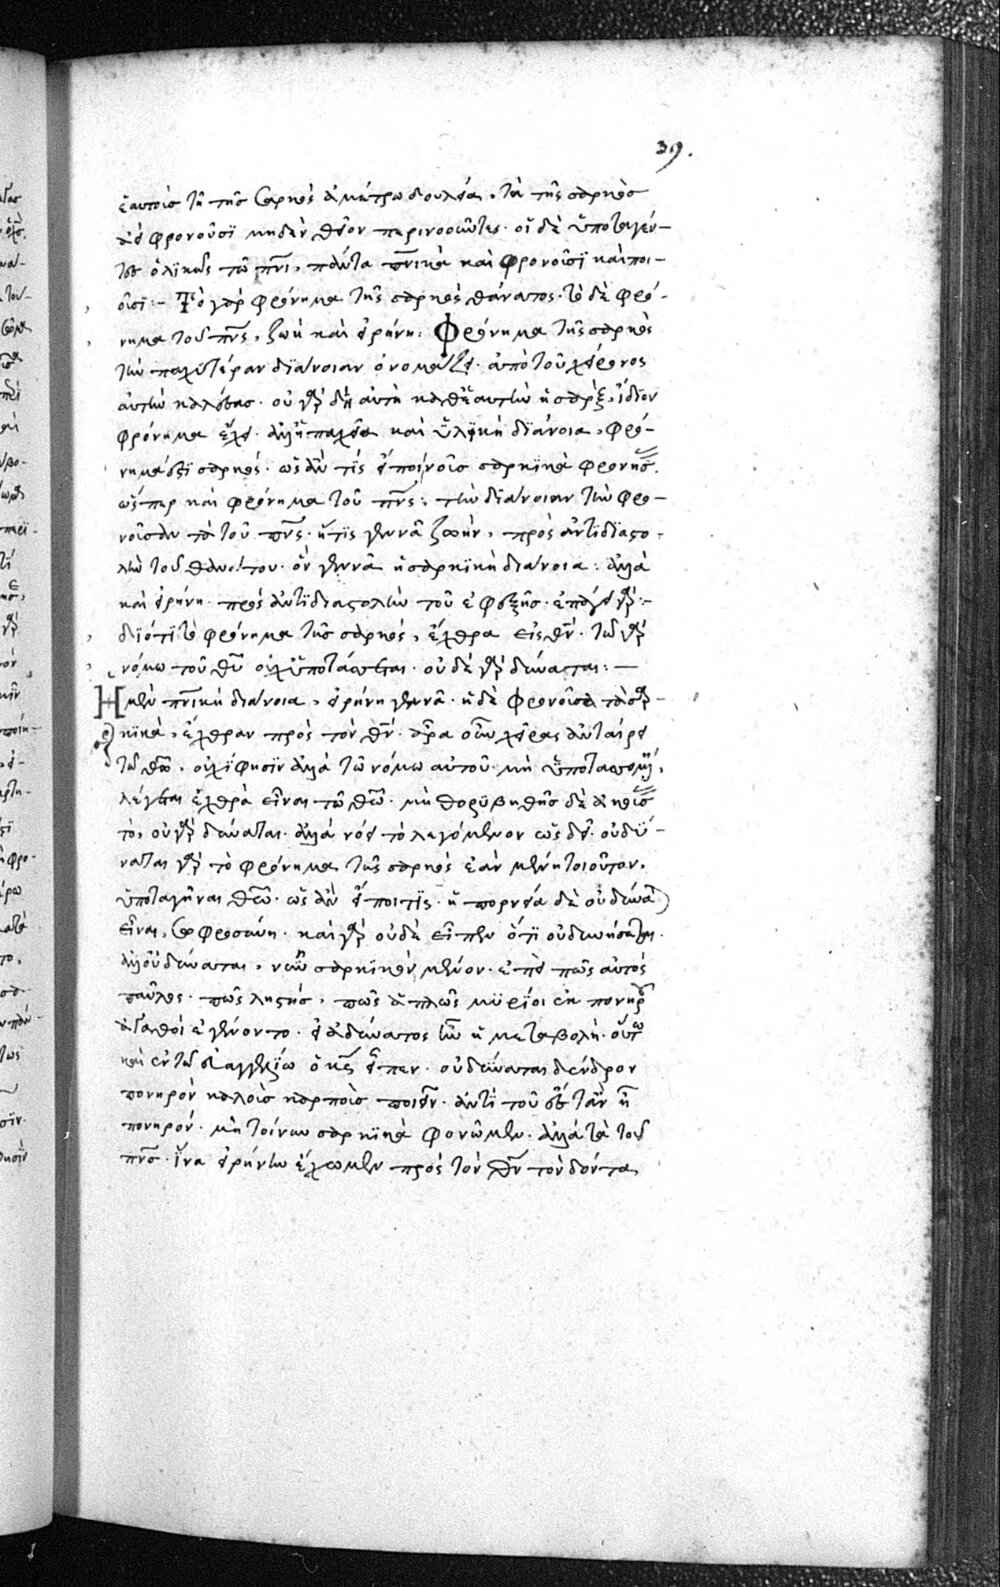 39.
ἑαυτοὺς τῇ τῆς σαρκὸς ἀμέτρῳ δουλεία, τὰ τῆς σαρκὸς
ἀεὶ φρονοῦσϊ μηδὲν θεῖον περινοοῦντες· οἱ δὲ ὑποταγέν-
τες ὁλϊκῶς τῶ πνι, πάντα πνικὰ καὶ φρονοῦσϊ καὶ ποι-
οῦσϊ:- Τὸ γὰρ φρόνημα τῆς σαρκὸς θάνατος· τὸ δὲ φρό-
νημα τοῦ πνς, ζωὴ καὶ εἰρήνη: Φρόνημα τῆς σαρκὸς
τὴν παχυτέραν διάνοιαν ὀνομάζει· ἀπὸ τοῦ χείρονος
αὐτὴν καλέσας· οὐ γὰρ δὴ αὐτὴ καθ ἑαυτὴν ἡ σὰρξ, ἴδιον
φρόνημα ἔχει· ἀλλ ἡ παχεῖα καὶ ὑλϊκὴ δϊάνοια, φρό-
νημά ἐστϊ σαρκός· ὡς ἄν τϊς εἴποι, νοῦς σαρκϊκὰ φρονῆσ
ὥσπερ καὶ φρόνημα τοῦ πνς: τὴν δϊάνοιαν τὴν φρο-
νοῦσαν τὰ τοῦ πνς· ἥτϊς γεννᾶ ζωὴν, πρὸς ἀντϊδϊαστο-
λὴν τοῦ θανάτου· ὃν γεννᾶ ἡ σαρκϊκὴ διάνοια: ἀλλὰ
καὶ εἰρήνη· πρὸς ἀντϊδιαστολὴν τοῦ ἐφεξῆς· ἐπάγει γάρ:-
δϊότϊ τὸ φρόνημα τῆς σαρκὸς, ἔχθρα εἰς θν· τῶ γὰρ
νόμω τοῦ θυ οὐχ ὑποτάσσεται· οὐδὲ γὰρ δύναται:—
Ἡ μὲν πνικὴ διάνοια, εἰρήνην γεννᾶ· ἡ δὲ φρονοῦσα τὰ σαρ-
κϊκὰ, ἔχθραν πρὸς τὸν θν· ἆρα οὖν χεῖρας ἀνταίρει
τῶ θω, οὐχί φησϊν ἀλλὰ τῶ νόμω αὐτοῦ μὴ ὑποτασσομένη,
λέγεται ἐχθρὰ εἶναι τῶ θω· μὴ θορυβηθῆς δὲ ἀκούσ
τὸ, οὐ γὰρ δύναται· ἀλλὰ νόει τὸ λεγόμενον ὡς δεῖ· οὐ δύ-
ναται γὰρ τὸ φρόνημα τῆς σαρκὸς ἐὰν μένη τοιοῦτον,
ὑποταγῆναι θεῶ· ὡς ἂν εἴποι τϊς· ἡ πορνεία δὲ οὐ δύνα
εἶναι, σωφροσύνη· καὶ γὰρ οὐδὲ εἶπεν ὅτϊ οὐ δυνήσεται·
ἀλλ οὐ δύναται, νῦν σαρκϊκὸν μένον· ἐπεὶ πῶς αὐτὸς
παῦλος· πῶς ληστής, πῶς ἁπλῶς μϋρίοι ἐκ πονηρῶν
ἀγαθοὶ ἐγένοντο· εἰ ἀδύνατος ἦν ἡ μεταβολή· οὕτω
καὶ ἐν τῶ εὐαγγελΐω ὁ κς εἶπεν· οὐ δύναται δένδρον
πονηρὸν καλοὺς καρποὺς ποιεῖν· ἀντὶ τοῦ ἕως ἂν ἦ
πονηρόν· μὴ τοίνυν σαρκϊκὰ φρονῶμεν· ἀλλὰ τὰ τοῦ
πνς· ἵνα εἰρήνην ἔχωμεν πρὸς τὸν θν τὸν δόντα